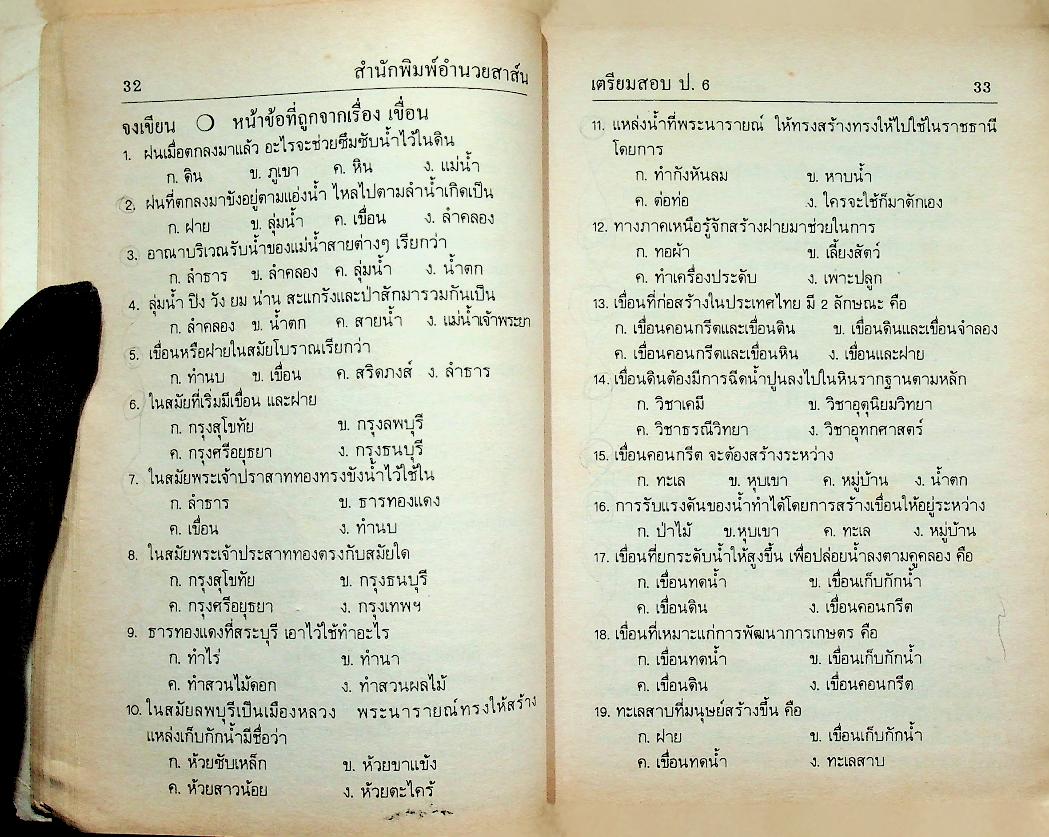 32
สำนักพิมพ์อำนวยสาส์น
จงเขียน ○ หน้าข้อที่ถูกจากเรื่อง เขื่อน
1. ฝนเมื่อตกลงมาแล้ว อะไรจะช่วยซึมซับน้ำไว้ในดิน
ก. ดิน ข. ภูเขา ค. หิน ง. แม่น้ำ
2. ฝนที่ตกลงมาขังอยู่ตามแอ่งน้ำ ไหลไปตามลำน้ำเกิดเป็น
ก. ฝาย ข. ลุ่มน้ำ ค. เขื่อน ง. ลำคลอง
3. อาณาบริเวณรับน้ำของแม่น้ำสายต่างๆ เรียกว่า
ก. ลำธาร ข. ลำคลอง ค. ลุ่มน้ำ ง. น้ำตก
4. ลุ่มน้ำ ปิง วัง ยม น่าน สะแกรังและป่าสักมารวมกันเป็น
ก. ลำคลอง ข. น้ำตก ค. สายน้ำ ง. แม่น้ำเจ้าพระยา
5. เขื่อนหรือฝายในสมัยโบราณเรียกว่า
ก. ทำนบ ข. เขื่อน ค. สรีดภงส์ ง. ลำธาร
6. ในสมัยที่เริ่มมีเขื่อน และฝาย
ก. กรุงสุโขทัย ข. กรุงลพบุรี
ค. กรุงศรีอยุธยา ง. กรุงธนบุรี
7. ในสมัยพระเจ้าปราสาททองทรงขังน้ำไว้ใช้ใน
ก. ลำธาร ข. ธารทองแดง
ค. เขื่อน ง. ทำนบ
8. ในสมัยพระเจ้าประสาททองตรงกับสมัยใด
ก. กรุงสุโขทัย ข. กรุงธนบุรี
ค. กรุงศรีอยุธยา ง. กรุงเทพฯ
9. ธารทองแดงที่สระบุรี เอาไว้ใช้ทำอะไร
ก. ทำไร่ ข. ทำนา
ค. ทำสวนไม้ดอก ง. ทำสวนผลไม้
10. ในสมัยลพบุรีเป็นเมืองหลวง พระนารายณ์ทรงให้สร้าง
แหล่งเก็บกักน้ำมีชื่อว่า
ก. ห้วยซับเหล็ก ข. ห้วยขาแข้ง
ค. ห้วยสาวน้อย ง. ห้วยตะไคร้
เตรียมสอบ ป. 6
33
11. แหล่งน้ำที่พระนารายณ์ ให้ทรงสร้างทรงให้ไปใช้ในราชธานี
โดยการ
ก. ทำกังหันลม ข. หาบน้ำ
ค. ต่อท่อ ง. ใครจะใช้ก็มาตักเอง
12. ทางภาคเหนือรู้จักสร้างฝายมาช่วยในการ
ก. ทอผ้า ข. เลี้ยงสัตว์
ค. ทำเครื่องประดับ ง. เพาะปลูก
13. เขื่อนที่ก่อสร้างในประเทศไทย มี 2 ลักษณะ คือ
ก. เขื่อนคอนกรีตและเขื่อนดิน ข. เขื่อนดินและเขื่อนจำลอง
ค. เขื่อนคอนกรีตและเขื่อนหิน ง. เขื่อนและฝาย
14. เขื่อนดินต้องมีการฉีดน้ำปูนลงไปในหินรากฐานตามหลัก
ก. วิชาเคมี ข. วิชาอุตุนิยมวิทยา
ค. วิชาธรณีวิทยา ง. วิชาอุทกศาสตร์
15. เขื่อนคอนกรีต จะต้องสร้างระหว่าง
ก. ทะเล ข. หุบเขา ค. หมู่บ้าน ง. น้ำตก
16. การรับแรงดันของน้ำทำได้โดยการสร้างเขื่อนให้อยู่ระหว่าง
ก. ป่าไม้ ข.หุบเขา ค. ทะเล ง. หมู่บ้าน
17. เขื่อนที่ยกระดับน้ำให้สูงขึ้น เพื่อปล่อยน้ำลงตามคูคลอง คือ
ก. เขื่อนทดน้ำ ข. เขื่อนเก็บกักน้ำ
ค. เขื่อนดิน ง. เขื่อนคอนกรีต
18. เขื่อนที่เหมาะแก่การพัฒนาการเกษตร คือ
ก. เขื่อนทดน้ำ ข. เขื่อนเก็บกักน้ำ
ค. เขื่อนดิน ง. เขื่อนคอนกรีต
19. ทะเลสาบที่มนุษย์สร้างขึ้น คือ
ก. ฝาย ข. เขื่อนเก็บกักน้ำ
ค. เขื่อนทดน้ำ ง. ทะเลสาบ